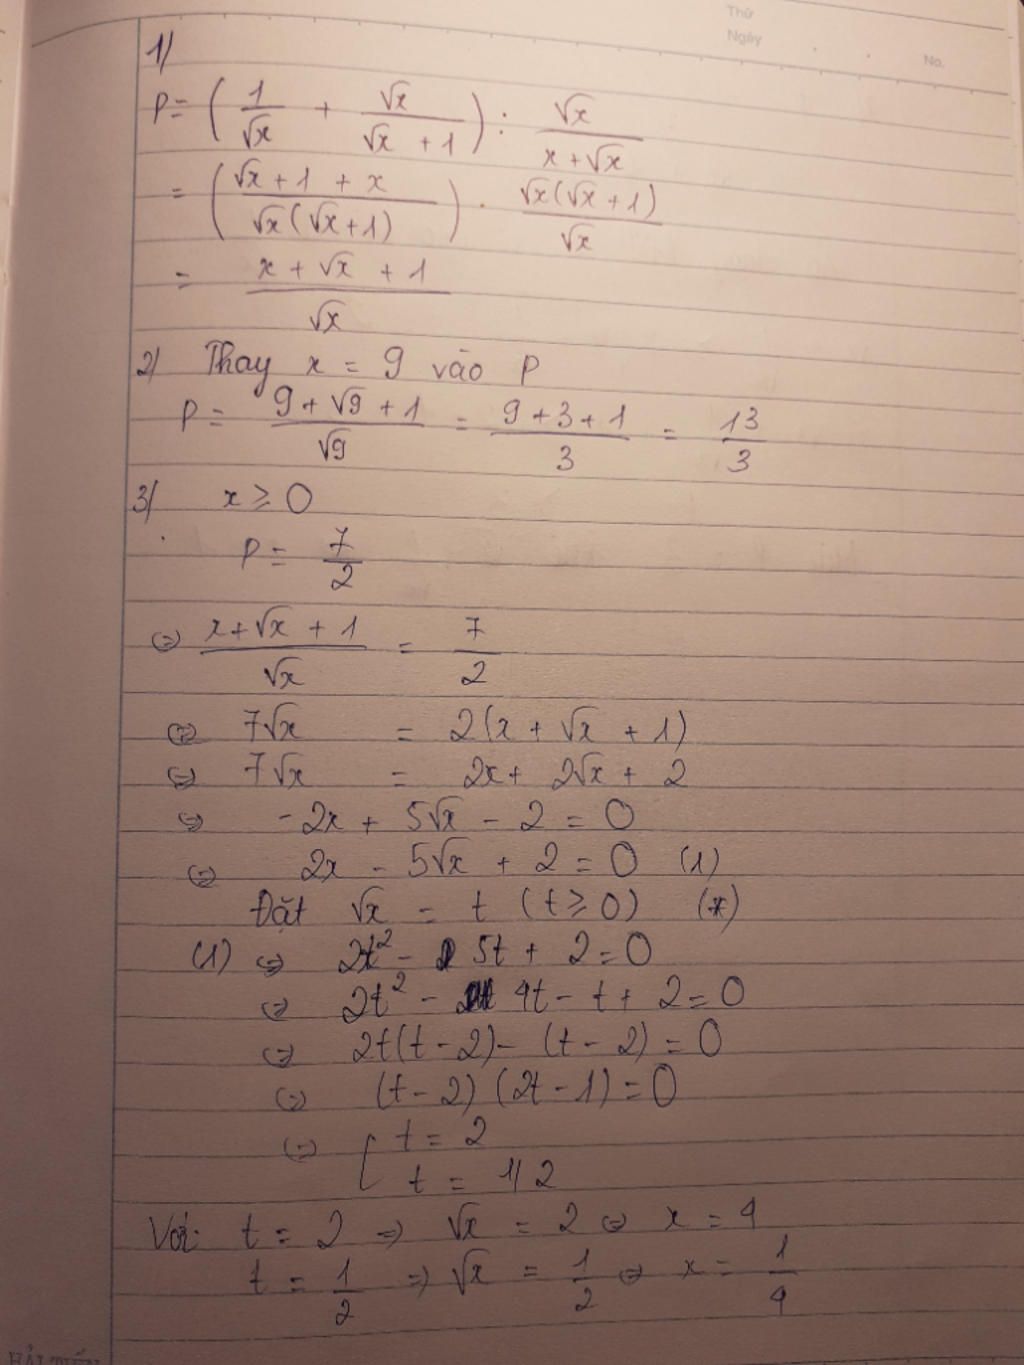 Thứ
Ngày
No.
1)
P = ( 1/√x + √x/(√x + 1) ) : √x/(x + √x)
= ( (√x + 1 + x)/(√x(√x + 1)) ) . √x(√x + 1)/√x
= (x + √x + 1)/√x
2) Thay x = 9 vào P
P = (9 + √9 + 1)/√9 = (9 + 3 + 1)/3 = 13/3
3) x ≥ 0
P = 7/2
⇔ (x + √x + 1)/√x = 7/2
⇔ 7√x = 2(x + √x + 1)
⇔ 7√x = 2x + 2√x + 2
⇔ -2x + 5√x - 2 = 0
⇔ 2x - 5√x + 2 = 0 (1)
Đặt √x = t (t ≥ 0) (*)
(1) ⇔ 2t² - 5t + 2 = 0
⇔ 2t² - 4t - t + 2 = 0
⇔ 2t(t - 2) - (t - 2) = 0
⇔ (t - 2) (2t - 1) = 0
⇔ [ t = 2
t = 1/2
Với: t = 2 ⇒ √x = 2 ⇔ x = 4
t = 1/2 ⇒ √x = 1/2 ⇔ x = 1/4
HẢI TIẾN